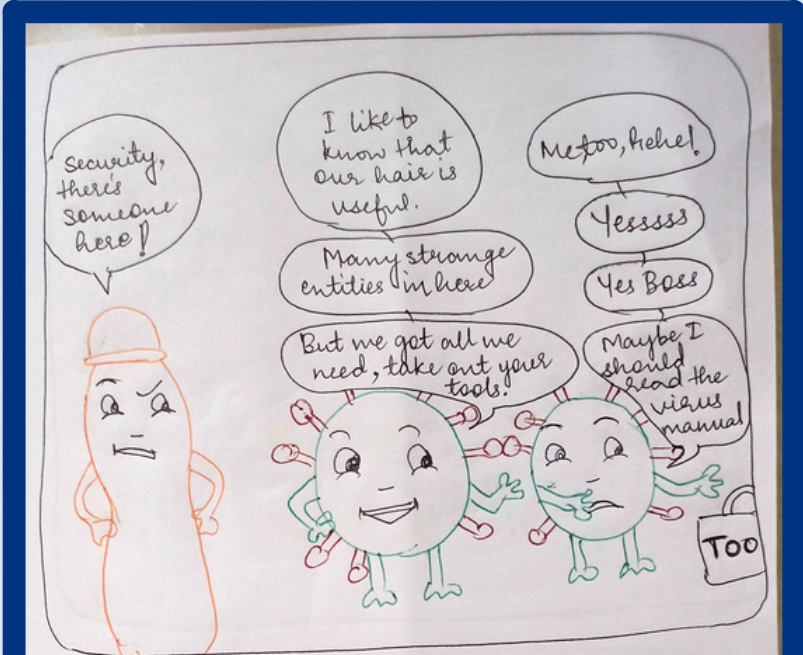 Security,
there's
someone
here!
I like to
know that
our hair is
useful.
Many strange
entities in here
But we got all we
need, take out your
tools.
Me too, hehe!
Yesssss
Yes Boss
Maybe I
should
read the
virus
manual
TOO